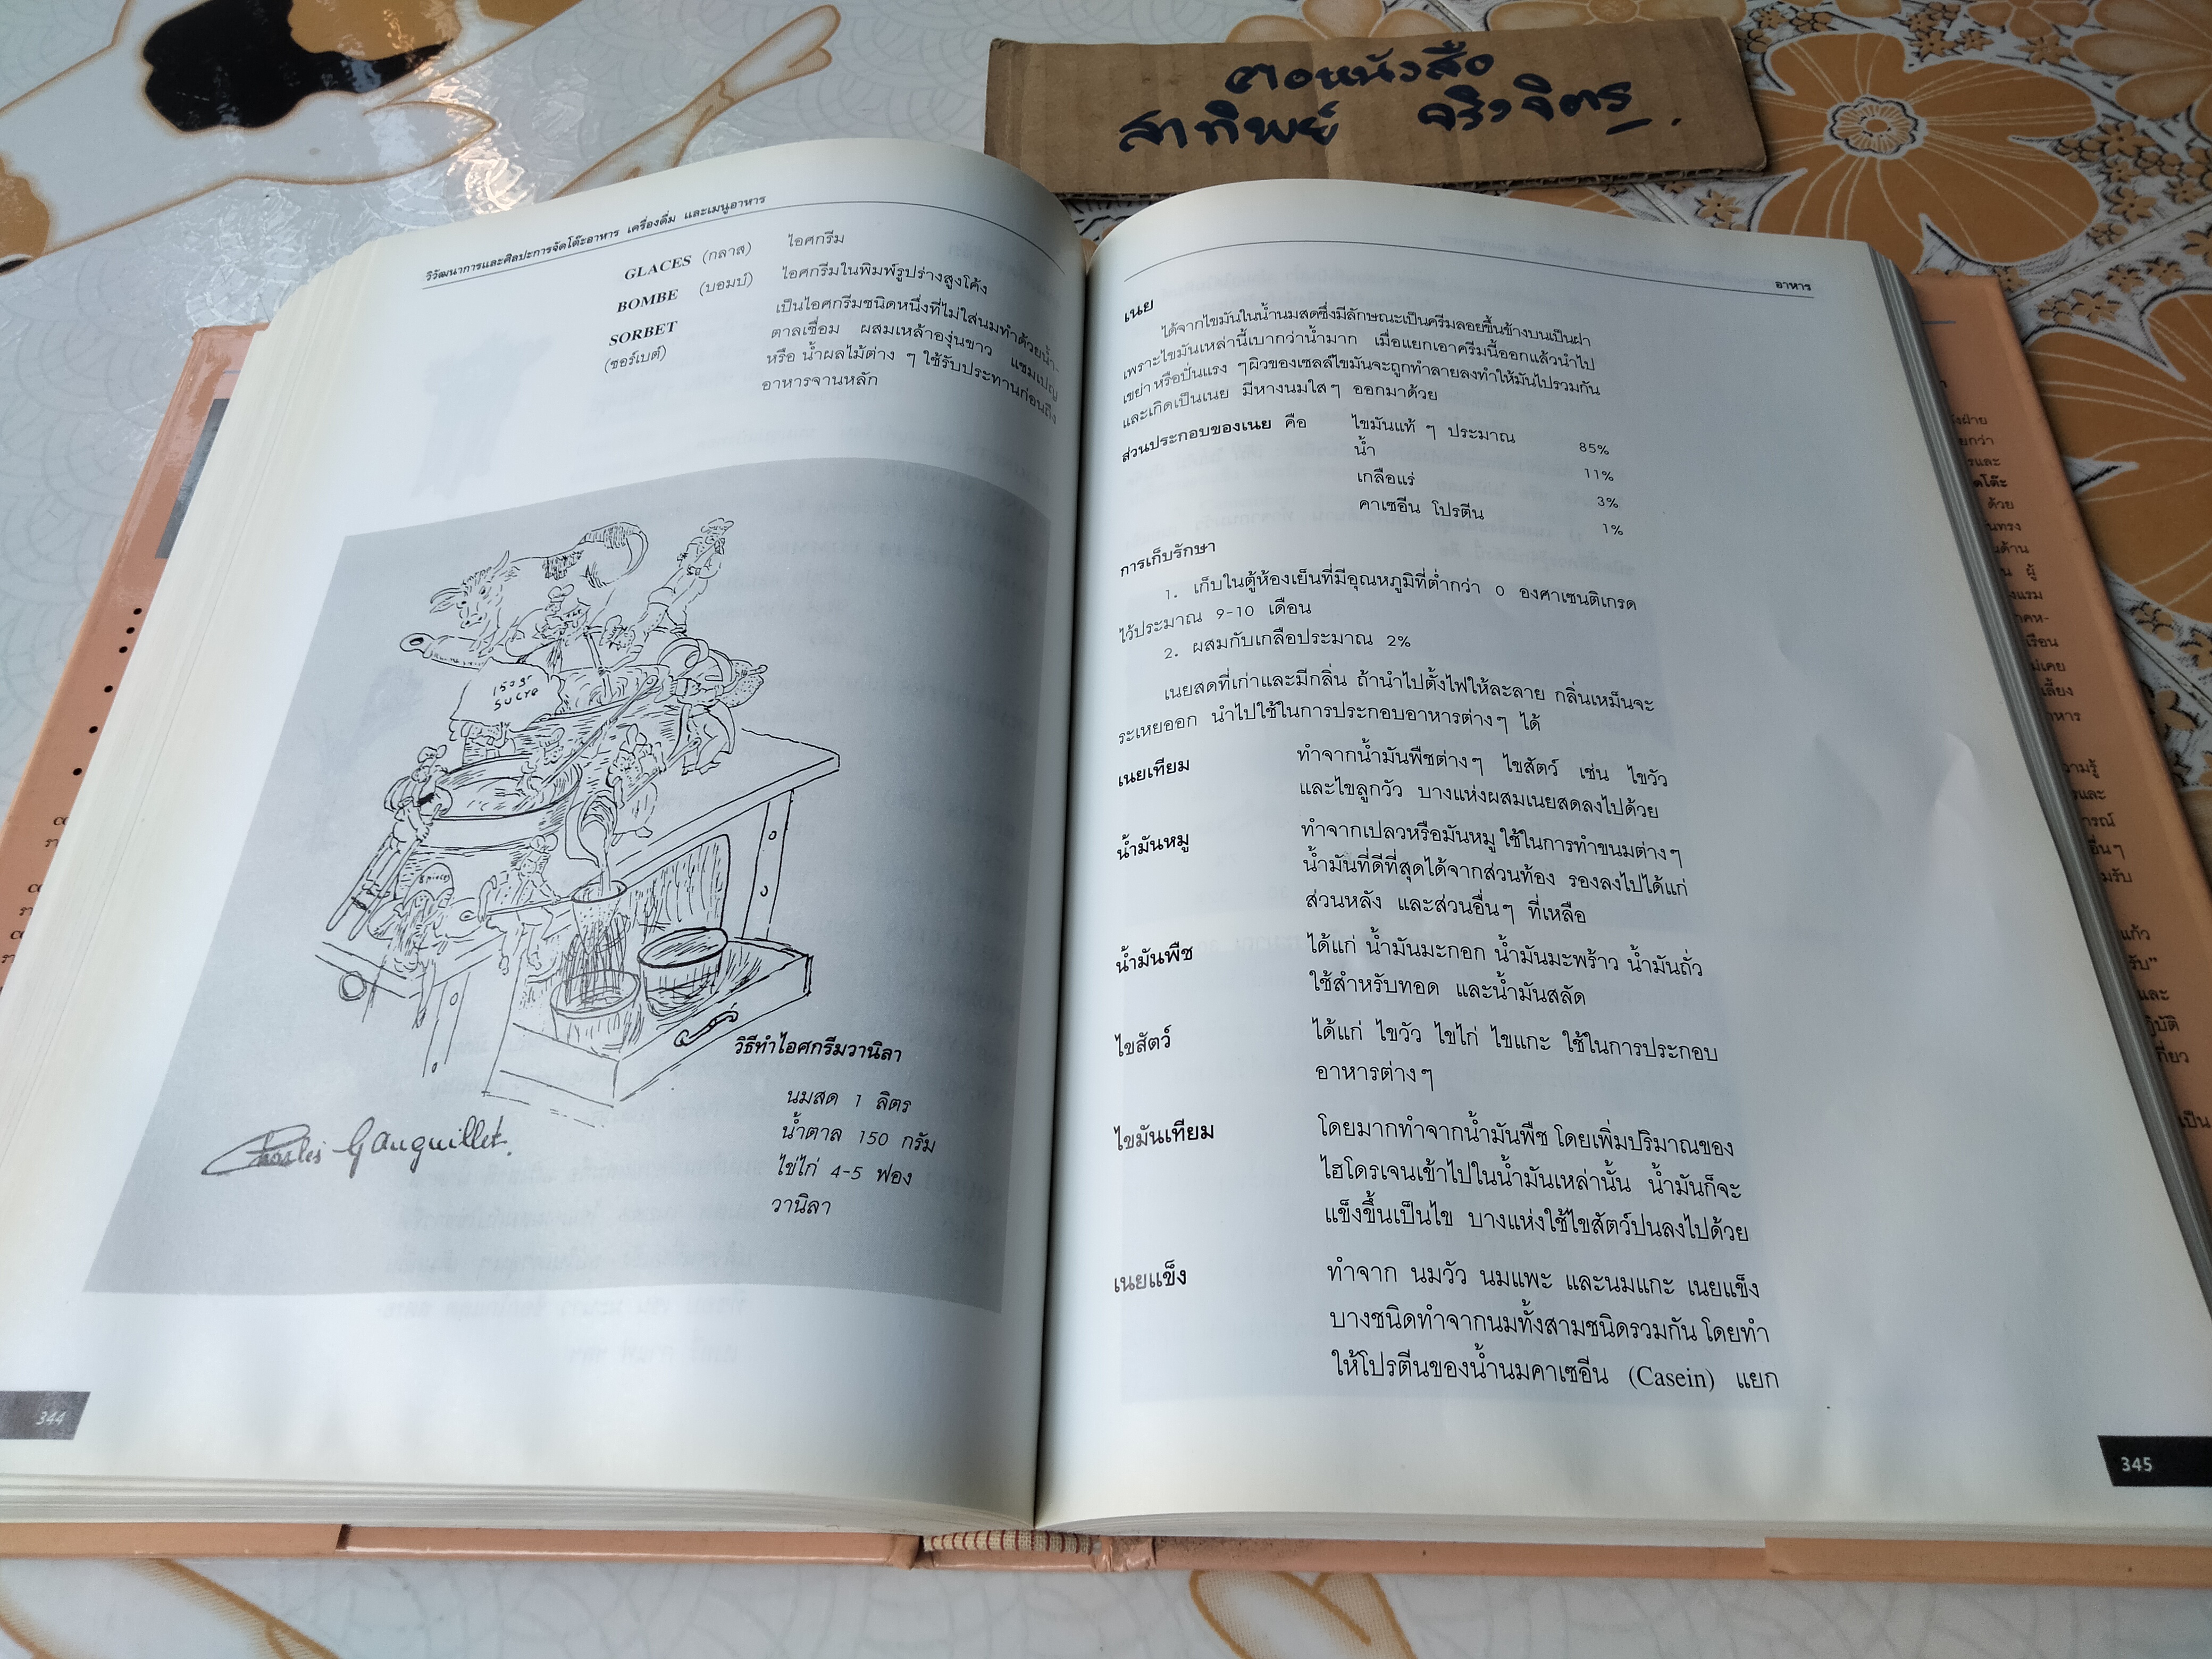 ตอหนังสือ
สาทิพย์ จริงจิตร
วิวัฒนาการและศิลปะการจัดโต๊ะอาหาร เครื่องดื่ม และเมนูอาหาร
GLACES (กลาส) ไอศกรีม
BOMBE (บอมบ์) ไอศกรีมในพิมพ์รูปร่างสูงโค้ง
SORBET เป็นไอศกรีมชนิดหนึ่งที่ไม่ใส่นมทำด้วยน้ำ-
(ซอร์เบต์) ตาลเชื่อม ผสมเหล้าองุ่นขาว แชมเปญ
หรือ น้ำผลไม้ต่าง ๆ ใช้รับประทานก่อนถึง
อาหารจานหลัก
150 gr
sucre
วิธีทำไอศกรีมวานิลา
นมสด 1 ลิตร
น้ำตาล 150 กรัม
ไข่ไก่ 4-5 ฟอง
วานิลา
Charles Gauguillet.
344
อาหาร
เนย
ได้จากไขมันในน้ำนมสดซึ่งมีลักษณะเป็นครีมลอยขึ้นข้างบนเป็นฝา
เพราะไขมันเหล่านี้เบากว่าน้ำมาก เมื่อแยกเอาครีมนี้ออกแล้วนำไป
เขย่า หรือปั่นแรง ๆ ผิวของเซลล์ไขมันจะถูกทำลายลงทำให้มันไปรวมกัน
และเกิดเป็นเนย มีหางนมใส ๆ ออกมาด้วย
ส่วนประกอบของเนย คือ ไขมันแท้ ๆ ประมาณ 85%
น้ำ 11%
เกลือแร่ 3%
คาเซอีน โปรตีน 1%
การเก็บรักษา
1. เก็บในตู้ห้องเย็นที่มีอุณหภูมิที่ต่ำกว่า 0 องศาเซนติเกรด
ไว้ประมาณ 9-10 เดือน
2. ผสมกับเกลือประมาณ 2%
เนยสดที่เก่าและมีกลิ่น ถ้านำไปตั้งไฟให้ละลาย กลิ่นเหม็นจะ
ระเหยออก นำไปใช้ในการประกอบอาหารต่างๆ ได้
เนยเทียม ทำจากน้ำมันพืชต่างๆ ไขสัตว์ เช่น ไขวัว
และไขลูกวัว บางแห่งผสมเนยสดลงไปด้วย
น้ำมันหมู ทำจากเปลวหรือมันหมู ใช้ในการทำขนมต่างๆ
น้ำมันที่ดีที่สุดได้จากส่วนท้อง รองลงไปได้แก่
ส่วนหลัง และส่วนอื่นๆ ที่เหลือ
น้ำมันพืช ได้แก่ น้ำมันมะกอก น้ำมันมะพร้าว น้ำมันถั่ว
ใช้สำหรับทอด และน้ำมันสลัด
ไขสัตว์ ได้แก่ ไขวัว ไขไก่ ไขแกะ ใช้ในการประกอบ
อาหารต่างๆ
ไขมันเทียม โดยมากทำจากน้ำมันพืช โดยเพิ่มปริมาณของ
ไฮโดรเจนเข้าไปในน้ำมันเหล่านั้น น้ำมันก็จะ
แข็งขึ้นเป็นไข บางแห่งใช้ไขสัตว์ปนลงไปด้วย
เนยแข็ง ทำจาก นมวัว นมแพะ และนมแกะ เนยแข็ง
บางชนิดทำจากนมทั้งสามชนิดรวมกัน โดยทำ
ให้โปรตีนของน้ำนมคาเซอีน (Casein) แยก
345